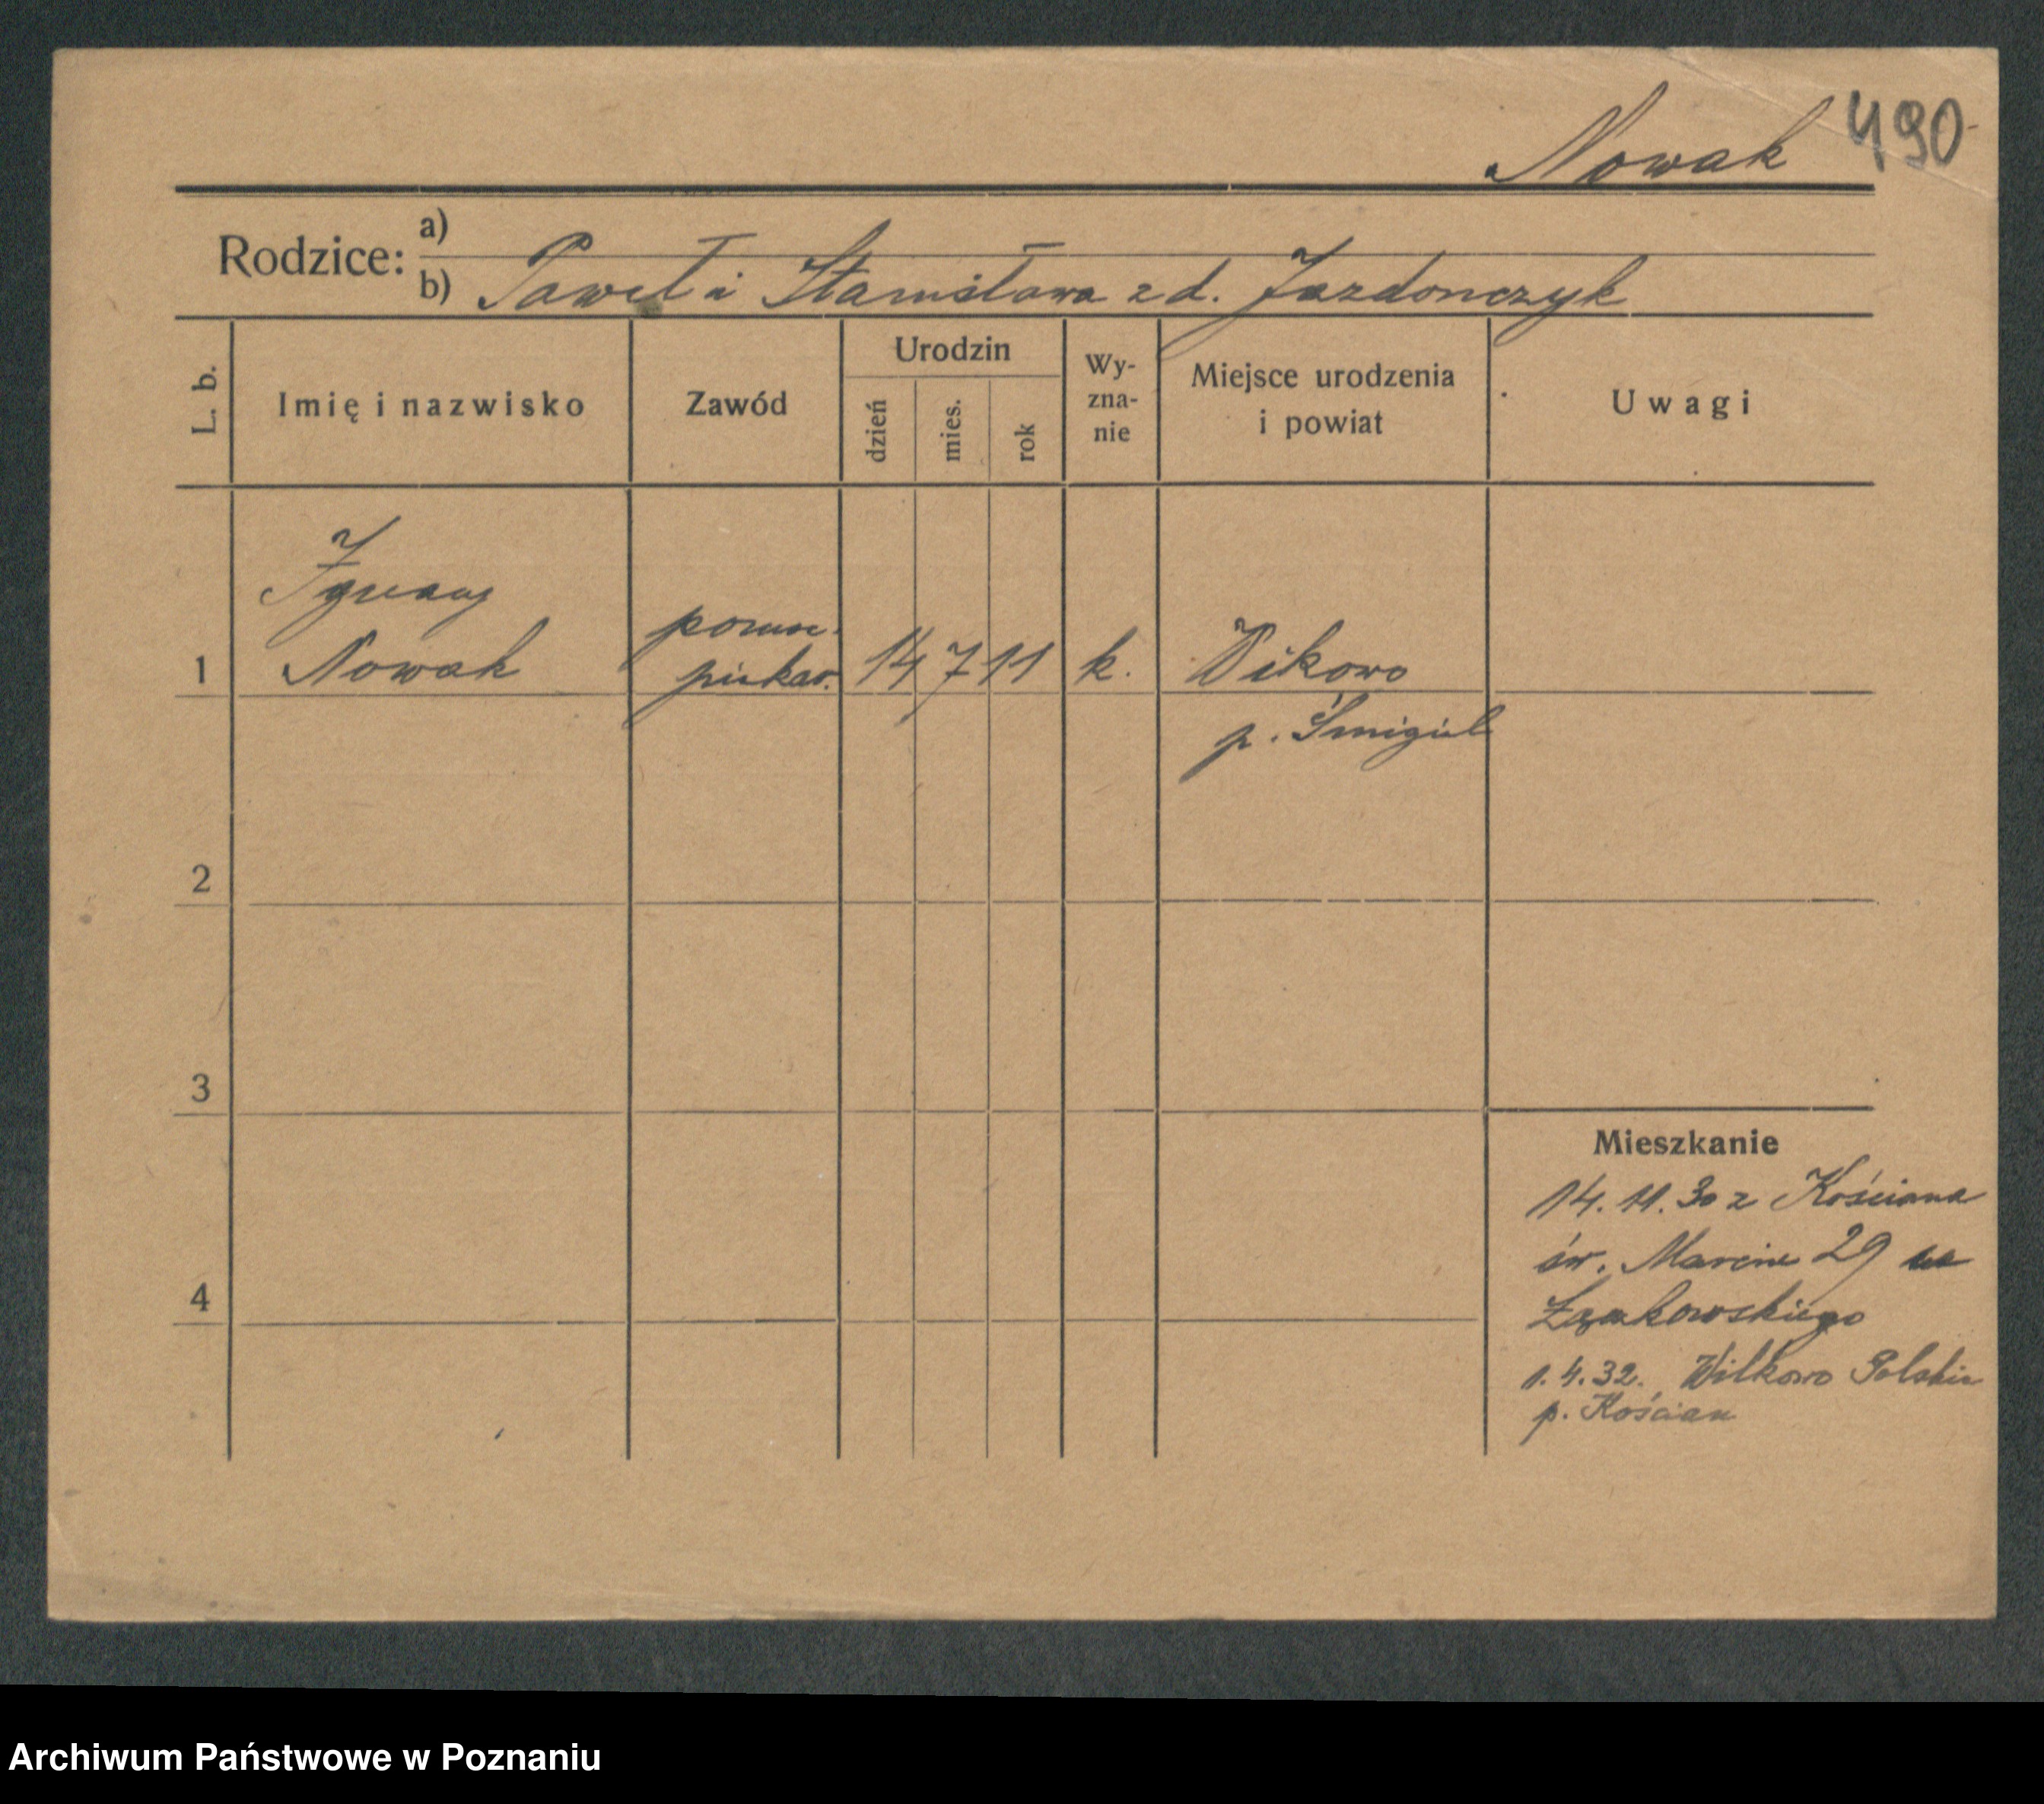 Nowak 490
Rodzice: a)
b) Paweł i Stanisława z d. Jazdonczyk
L. b.
Imię i nazwisko
Zawód
Urodzin
dzień
mies.
rok
Wy-
zna-
nie
Miejsce urodzenia
i powiat
Uwagi
Ignacy
pomoc.
1 Nowak piekar. 14 7 11 k. Wikowo
p. Śmigiel
2
3
4
Mieszkanie
14. 11. 30 z Kościana
św. Marcin 29
1. 4. 32. Wilkowo Polskie
p. Kościan
Archiwum Państwowe w Poznaniu